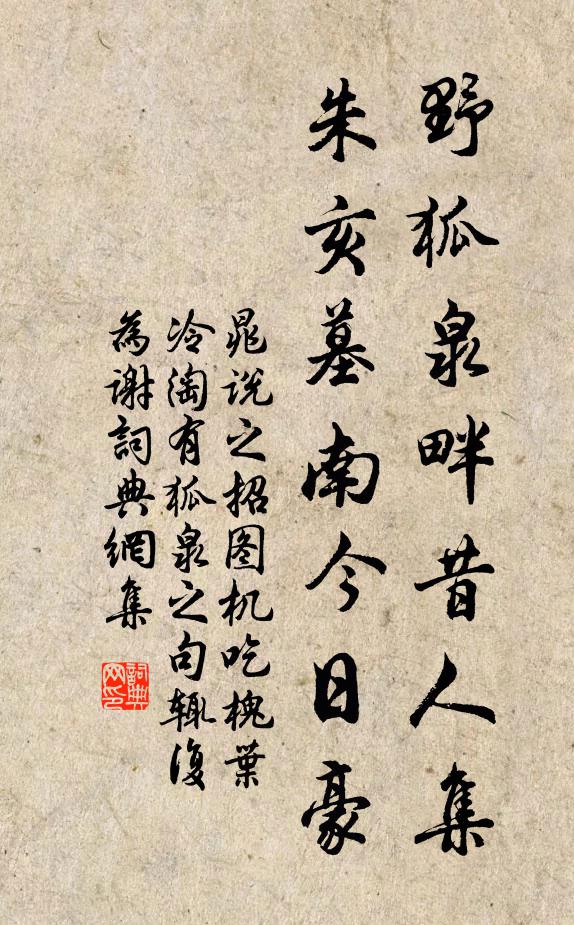 野狐泉畔昔人集
朱亥墓南今日豪
晁说之招图机吃槐葉
冷淘有狐泉之句辄復
為謝詞典網集
詞典
网印